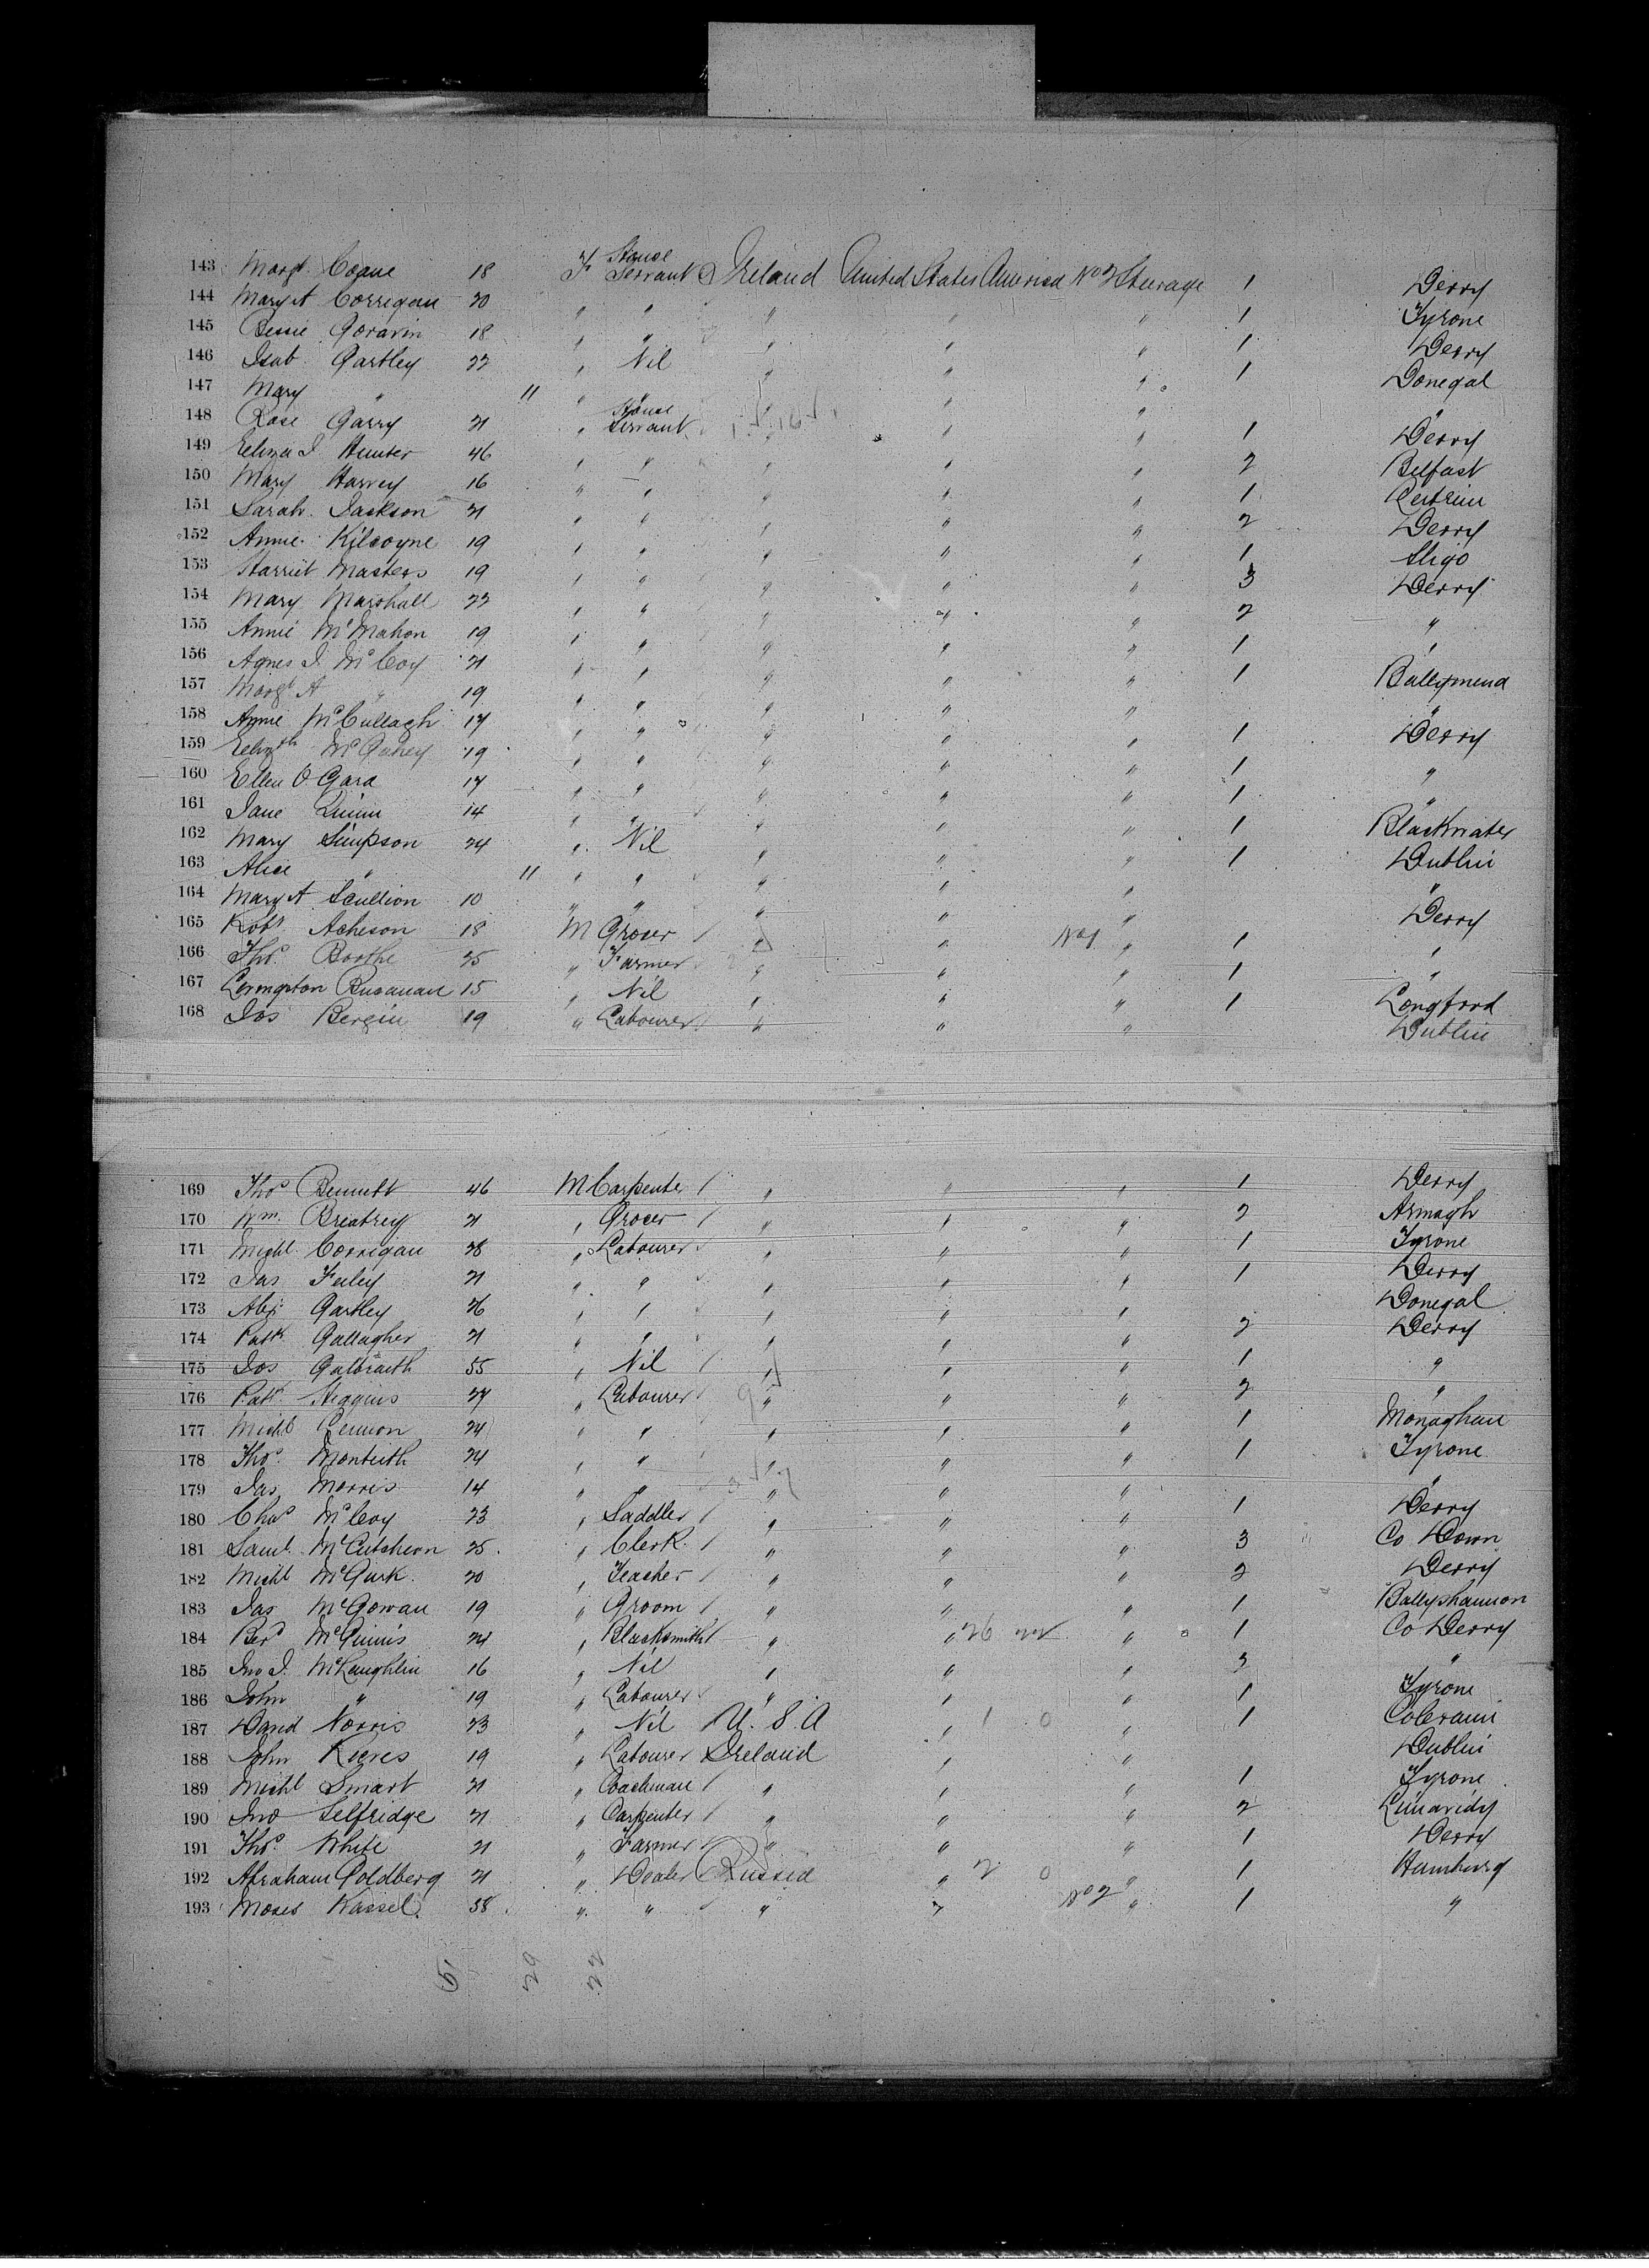 143 Margt. Coane 18 F House Servant Ireland United States America No 2 Steerage 1 Derry
144 Mary A Corrigan 20 " " " " " 1 Tyrone
145 Bessie 18 " " " " " 1 Derry
146 Isab. Gartley 22 " Nil " " " 1 Donegal
147 Mary " 11 " " " " " "
148 Rose Garry 21 " House Servant " " " 1 Derry
149 Eliza J Hunter 46 " " " " " 2 Belfast
150 Mary Harvey 16 " " " " " 1
151 Sarah Jackson 21 " " " " " 2 Derry
152 Annie Kilcoyne 19 " " " " " 1 Sligo
153 Harriet Masters 19 " " " " " 3 Derry
154 Mary Marshall 22 " " " " " 2 "
155 Annie McMahon 19 " " " " " 1 "
156 Agnes J. McCoy 21 " " " " " 1 Ballymena
157 Margt A " 19 " " " " " "
158 Annie McCullagh 17 " " " " " 1 Derry
159 Elizth McGahey 19 " " " " " 1 "
160 Ellen O Gara 17 " " " " " 1 "
161 Jane Quinn 14 " " " " " 1 Blackwater
162 Mary Simpson 24 " Nil " " " 1 Dublin
163 Alice " 11 " " " " " "
164 Mary A Scullion 10 " " " " " Derry
165 Robt. Acheson 18 M Grocer " " No 1 " 1 "
166 Thos. Boothe 25 " Farmer " " " 1 "
167 Buchanan 15 " Nil " " " 1 Longford
168 Jos Bergin 19 " Labourer " " " Dublin
169 Thos Bennett 46 M Carpenter " " " 1 Derry
170 Wm. 21 " Grocer " " " 2 Armagh
171 Michl. Corrigan 28 " Labourer " " " 1 Tyrone
172 Jas Feeley 21 " " " " " 1 Derry
173 Alex. Gartley 26 " " " " " Donegal
174 Patk. Gallagher 21 " " " " " 2 Derry
175 Jos Galbraith 55 " Nil " " " 1 "
176 Patk. Higgins 27 " Labourer " " " 2 "
177 Michl Lennon 24 " " " " " 1 Monaghan
178 Thos. Monteith 24 " " " " " 1 Tyrone
179 Jas Morris 14 " " " " " "
180 Chas McCoy 23 " Saddler " " " 1 Derry
181 Saml. McCutcheon 25 " Clerk " " " 3 Co Down
182 Michl McGurk 20 " Teacher " " " 2 Derry
183 Jas McGowan 19 " Groom " " " 1 Ballyshannon
184 Berd McGinnis 24 " Blacksmith " " 26 22 " 1 Co Derry
185 Jno J. McLaughlin 16 " Nil " " " 3 "
186 John " 19 " Labourer " " " 1 Tyrone
187 David Norris 23 " Nil U.S.A " 1 0 " 1 Colerain
188 John 19 " Labourer Ireland " " Dublin
189 Michl Smart 21 " Coachman " " " 1 Tyrone
190 Jno Selfridge 21 " Carpenter " " " 2 Limavidy
191 Thos. White 21 " Farmer " " " 1 Derry
192 Abraham Goldberg 21 " Dealer Russia " 2 0 " 1 Hamburg
193 Moses Kassel 38 " " " " No 2 " 1 "
29 22